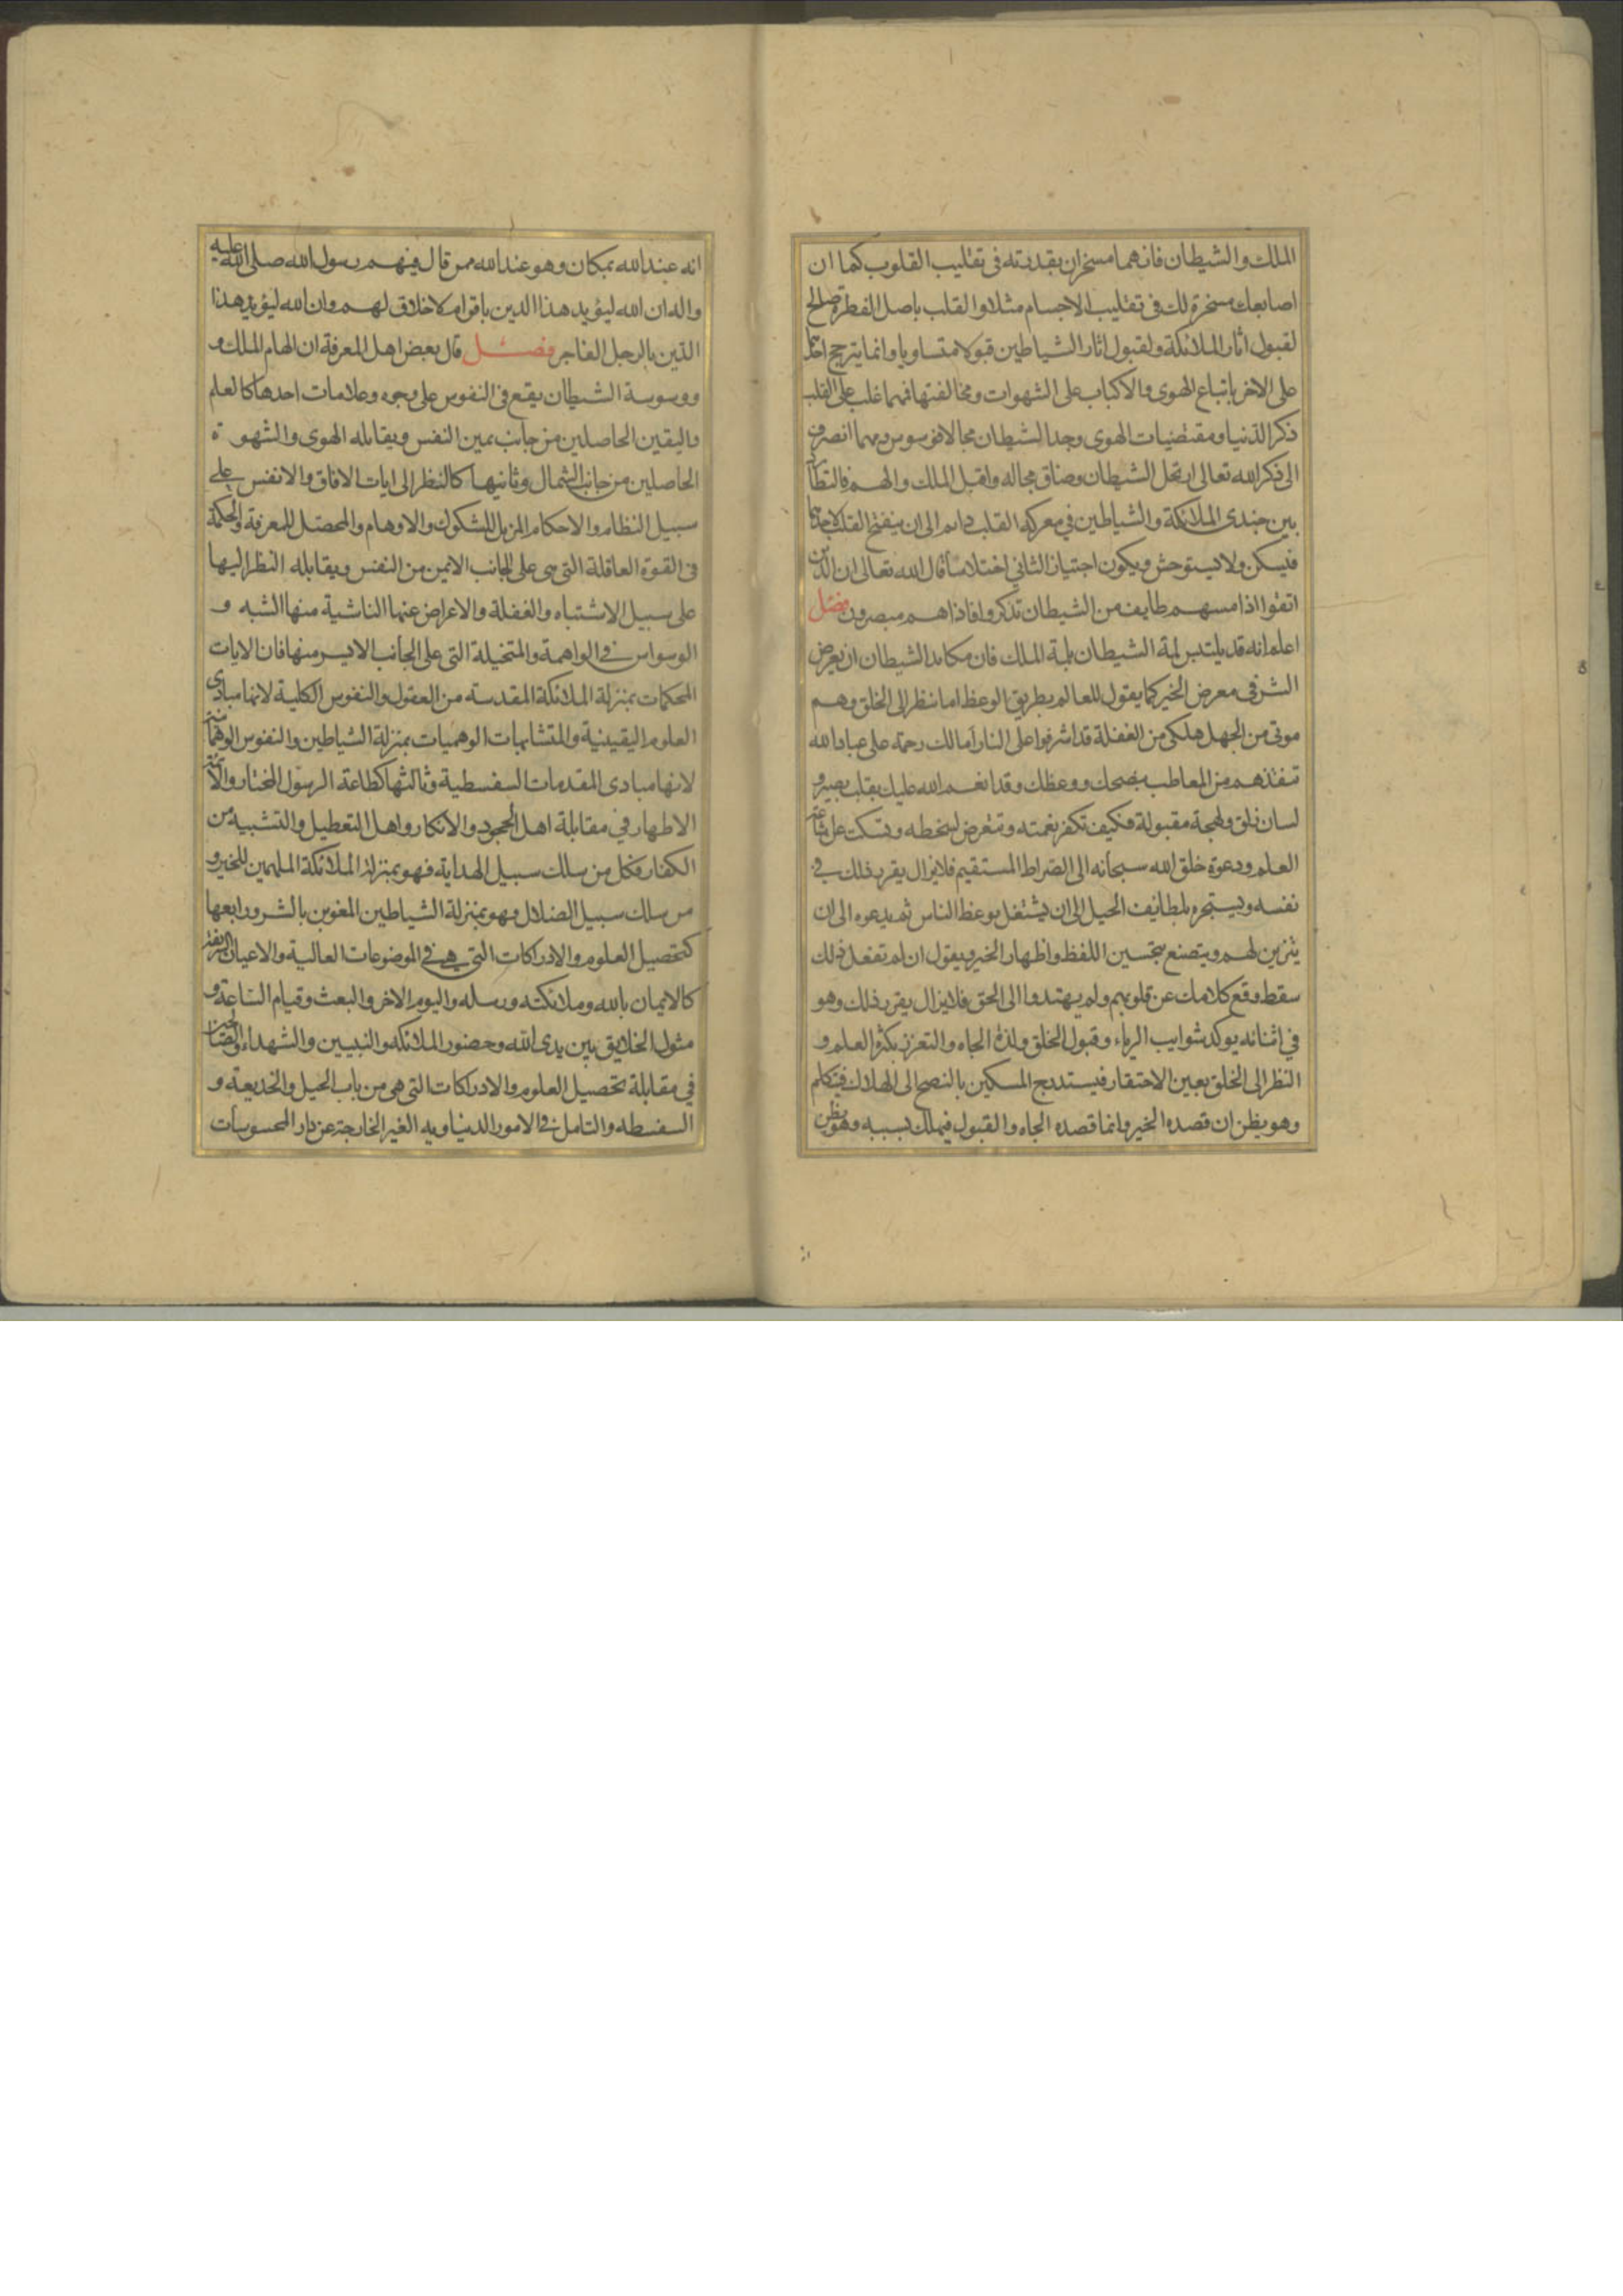 الملك والشيطان فانهما مسخران بقدرته فى تقليب القلوب كما ان
اصابعك مسخرة لك فى تقليب الاجسام مثلا والقلب باصل الفطرة صالح
لقبول اثار الملائكة ولقبول اثار الشياطين قبولا متساويا وانما يترجح احدهما
على الاخر باتباع الهوى والاكباب على الشهوات ومخالفتها فمهما غلب على القلب
ذكر الدنيا ومقتضيات الهوى وجد الشيطان مجالا فوسوس ومهما انصرف
الى ذكر الله تعالى ارتحل الشيطان وضاق مجاله واقبل الملك والهم فالتطارد
بين جندى الملائكة والشياطين في معركه القلب دايم الى ان ينفتح القلب لاحدهما
فيسكن ولا يستوحش ويكون اجتياز الثاني اختلاسا قال الله تعالى ان الذين
اتقوا اذا مسهم طايف من الشيطان تذكروا فاذا هم مبصرون فصل
اعلم انه قد يلتبس لمة الشيطان بلمة الملك فان مكايد الشيطان ان يعرض
الشر فى معرض الخير كما يقول للعالم بطريق الوعظ اما تنظر الى الخلق وهم
موتى من الجهل هلكى من الغفلة قد اشرفوا على النار اما لك رحمة على عباد الله
تنقذهم من المعاطب بنصحك ووعظك وقد انعم الله عليك بقلب بصير و
لسان ذلق ولهجة مقبولة فكيف تكفر نعمته وتتعرض لسخطه وتسكت عن اشاعة
العلم ودعوة خلق الله سبحانه الى الصراط المستقيم فلا يزال يقرر ذلك في
نفسه ويستجره بلطايف الحيل الى ان يشتغل بوعظ الناس ثم يدعوه الى ان
يتزين لهم ويتصنع بتحسين اللفظ واظهار الخير ويقول ان لم تفعل ذلك
سقط وقع كلامك عن قلوبهم ولم يهتدوا الى الحق فلا يزال يقرر ذلك وهو
في اثنائه يوكد شوايب الرياء وقبول الخلق ولذة الجاه والتعزز بكثرة العلم و
النظر الى الخلق بعين الاحتقار فيستدرج المسكين بالنصح الى الهلاك فيتكلم
وهو يظن ان قصده الخير وانما قصده الجاه والقبول فيهلك بسببه وهو يظن
انه عند الله بمكان وهو عند الله ممن قال فيهم رسول الله صلى الله عليه
واله ان الله ليؤيد هذا الدين باقوام لا خلاق لهم وان الله ليؤيد هذا
الدين بالرجل الفاجر فصل قال بعض اهل المعرفة ان الهام الملك و
ووسوسة الشيطان يقع فى النفوس على وجوه وعلامات احدها كالعلم
واليقين الحاصلين من جانب يمين النفس ويقابله الهوى والشهوة
الحاصلين من جانب الشمال وثانيها كالنظر الى ايات الافاق والانفس على
سبيل النظام والاحكام المزيل للشكوك والاوهام والمحصل للمعرفة والحكمة
فى القوة العاقلة التى هى على الجانب الايمن من النفس ويقابله النظر اليها
على سبيل الاشتباه والغفلة والاعراض عنها الناشية منها الشبه و
الوسواس في الواهمة والمتخيلة التى على الجانب الايسر منها فان الايات
المحكمات بمنزلة الملائكة المقدسه من العقول والنفوس الكلية لانها مبادى
العلوم اليقينية والمتشابهات الوهميات بمنزلة الشياطين والنفوس الوهمانية
لانها مبادى المقدمات السفسطية وثالثها كطاعة الرسول المختار والائمة
الاطهار في مقابلة اهل الجحود والانكار واهل التعطيل والتشبيه من
الكفار فكل من سلك سبيل الهداية فهو بمنزلة الملائكة الملهمين للخير و
من سلك سبيل الضلال فهو بمنزلة الشياطين المغوين بالشر ورابعها
كتحصيل العلوم والادراكات التى هي في الموضوعات العالية والاعيان الشريفة
كالايمان بالله وملائكته ورسله واليوم الاخر والبعث وقيام الساعة و
مثول الخلايق بين يدى الله وحضور الملائكه والنبيين والشهداء والصالحين
في مقابلة تحصيل العلوم والادراكات التى هى من باب الحيل والخديعة و
السفسطه والتامل في الامور الدنياويه الغير الخارجة عن دار المحسوسات